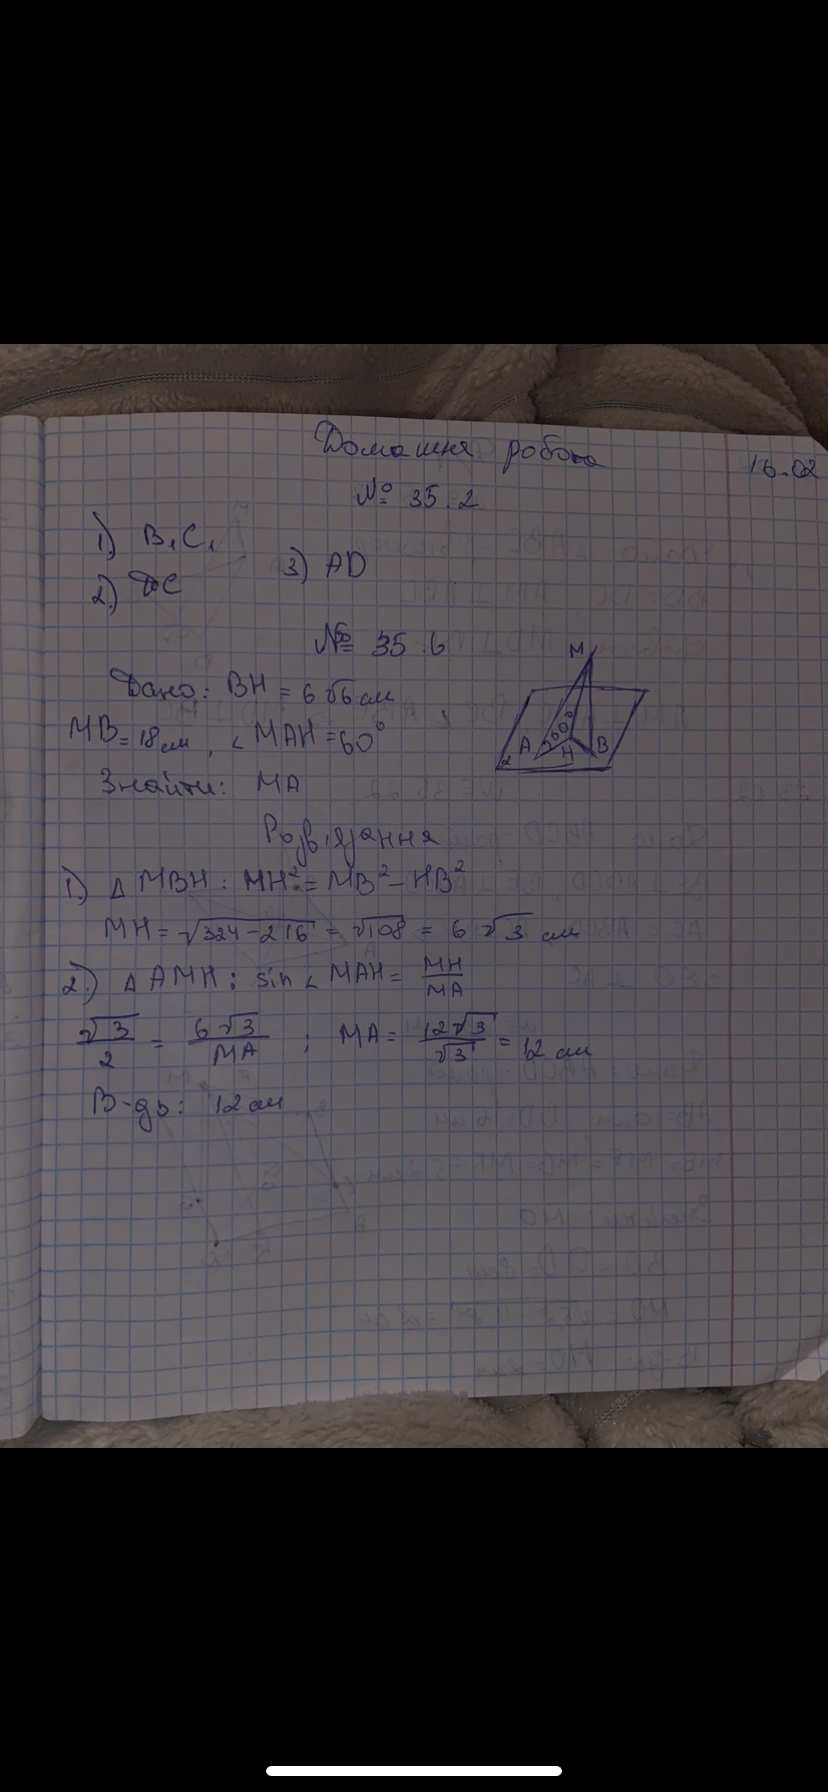 Домашня робота
16.02
№ 35.2
1) B₁C₁
2) DC
3) AD
№ 35.6
Дано: BH = 6√6 см
MB = 18 см, ∠ MAH = 60°
Знайти: MA
M
60°
A
H
B
α
Розв'язання
1) Δ MBH: MH² = MB² - HB²
MH = √324-216 = √108 = 6√3 см
2) Δ AMH: sin ∠ MAH = MH/MA
√3/2 = 6√3/MA ; MA = 12√3/√3 = 12 см
В-дь: 12 см